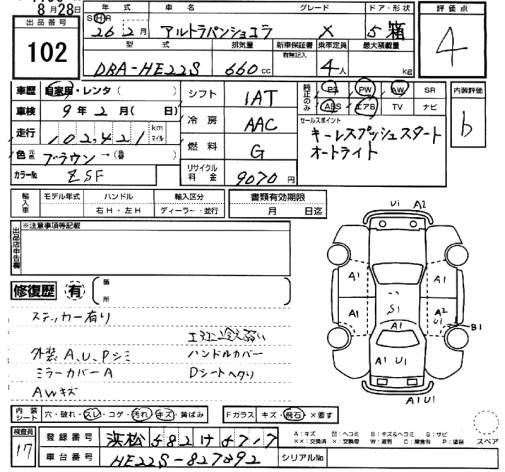 8月28日
出品番号
102
年式 車名 グレード ドア・形状
SHR 26年2月 アルトラパンショコラ X 5 箱
型式 排気量 新車保証書 有無記入 乗車定員 最大積載量
DBA-HE22S 660cc 4人 kg
評価点
4
車歴 自家用・レンタ( )
車検 9年2月(日)
走行 102,421 km マイル
色 元色 ブラウン→(替)
カラーNo ZSF
シフト 1AT
冷房 AAC
燃料 G
リサイクル料金 9070円
純正のみ PS PW AW SR
ABS エアB TV ナビ
セールスポイント
キーレスプッシュスタート
オートライト
内装評価
b
輸入車 モデル年式 ハンドル 輸入区分 書類有効期限
年 右H・左H ディーラー・並行 月 日迄
出品店申告欄
※注意事項等記載
修復歴 有 箇所
ステッカー有り
エアコン冷え弱い
外装A,U,Pシミ ハンドルカバー
ミラーカバーA Dシートヘタリ
AWキズ
Ui A2
A1 A1
S1
A1
A2
Ui
B1
A1 U1
A1U1
内装シート 穴・破れ・スレ・コゲ・汚れ・キズ・黄ばみ
Fガラス キズ・飛石・×要す
スペア
検査員
17
登録番号 浜松582け4717
車台番号 HE22S-827892
シリアルNo
A:キズ U:ヘコミ B:キズ&ヘコミ S:サビ
××:交換済 ×:交換等 W:波判 C:腐食有 P:塗装